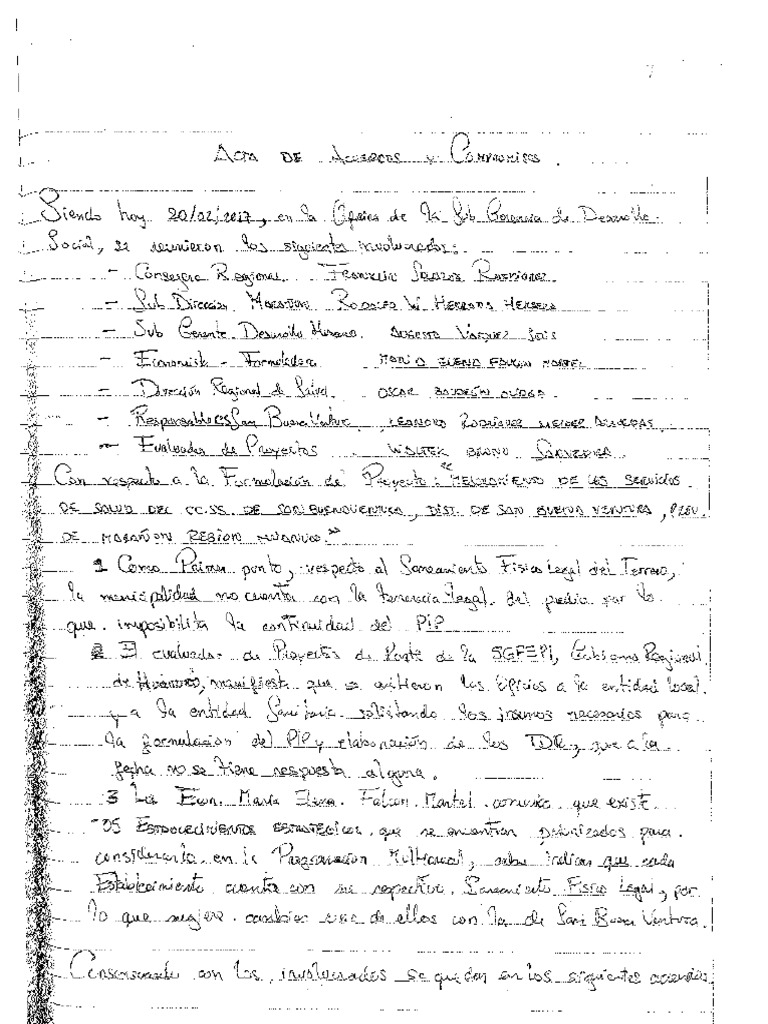 ACTA DE ACUERDOS Y COMPROMISOS.
Siendo hoy 20/02/2017, en la Oficina de la Sub Gerencia de Desarrollo
Social, se reunieron los siguientes involucrados:
- Consejero Regional FRANKLIN
- Sub Director MARAÑON RODOLFO W. HERRERA
- Sub Gerente Desarrollo Humano. AUGUSTO VÁSQUEZ SOLIS
- Economista - Formuladora MARIA ELENA FALCON MARTEL
- Dirección Regional de Salud OSCAR
- Responsable CS San Buena Ventura LEANDRO RODRIGUEZ
- Evaluador de Proyectos WALTER BRUNO
Con respecto a la Formulación del Proyecto: "MEJORAMIENTO DE LOS SERVICIOS
DE SALUD DEL CC.SS. DE SAN BUENAVENTURA, DIST. DE SAN BUENA VENTURA, PROV.
DE MARAÑON REGION HUANUCO."
1 Como Primer punto, respecto al Saneamiento Físico Legal del Terreno,
la municipalidad no cuenta con la tenencia legal del predio por lo
que imposibilita la continuidad del PIP
2 El evaluador de Proyectos de Parte de la SGFEPI, Gobierno Regional
de Huánuco, manifiesta que se emitieron los oficios a la entidad local
y a la entidad Sanitaria solicitando los insumos necesarios para
la formulación del PIP y elaboración de los TDR, y que a la
fecha no se tiene respuesta alguna.
3 La Econ. María Elena Falcon Martel comunico que existe
05 ESTABLECIMIENTOS ESTRATÉGICOS que se encuentran priorizados para
considerarlo en la Programación Multianual, indican que cada
Establecimiento cuenta con su respectivo Saneamiento Físico Legal, por
lo que sugiere cambiar uno de ellos con la de San Buena Ventura.
Consensuando con los involucrados se quedan en los siguientes acuerdos